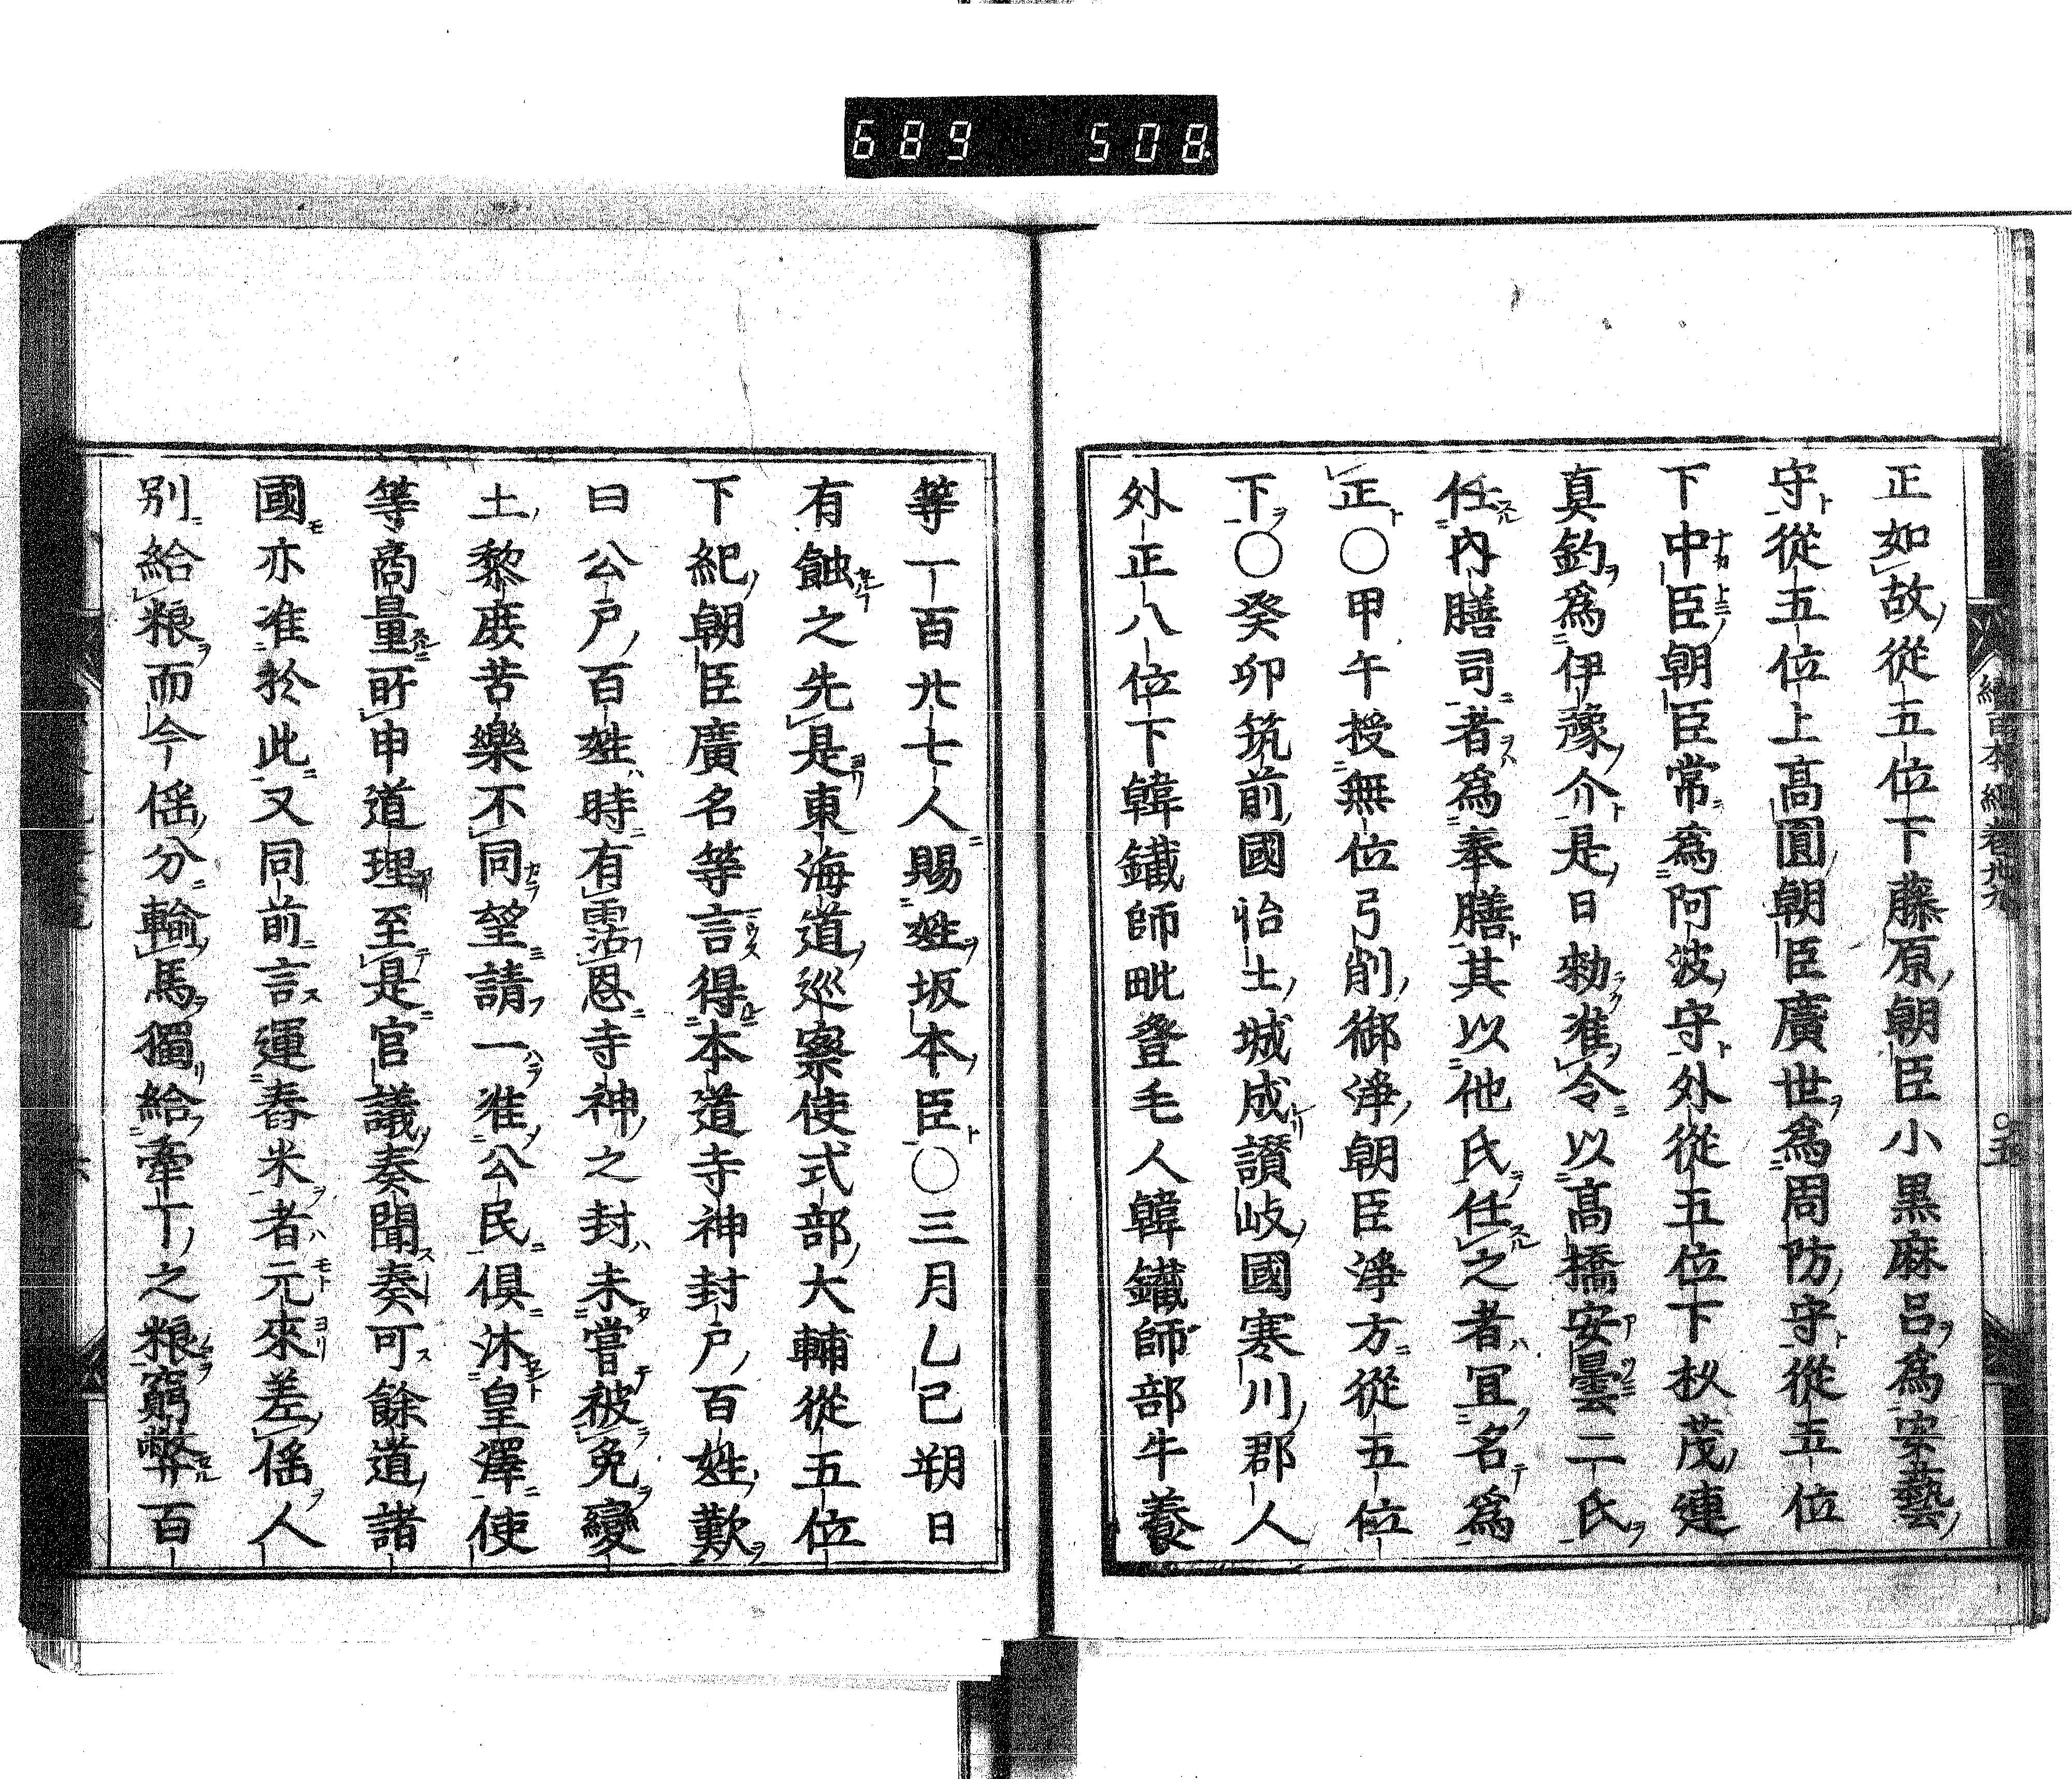 689 508
續日本紀卷廿九 〇五
正如故從五位下藤原朝臣小黒麻呂爲安藝
守從五位上高圓朝臣廣世爲周防守從五位
下中臣朝臣常爲阿波守外從五位下松茂連
真釣爲伊豫介是日勑准令以髙橋安曇二氏
任內膳司者爲奉膳其以他氏任之者冝名爲
正〇甲午授無位弓削御淨朝臣淨方從五位
下〇癸卯筑前國怡土城成讃岐國寒川郡人
外正八位下韓鐵師毗登毛人韓鐵師部牛養
等一百廿七人賜姓坂本臣〇三月乙巳朔日
有蝕之先是東海道巡察使式部大輔從五位
下紀朝臣廣名等言得本道寺神封户百姓歎
曰公户百姓時有霑恩寺神之封未嘗被免變
土黎庻苦樂不同望請一准公民俱沐皇澤使
等商量所申道理至是官議奏聞奏可餘道諸
國亦准於此又同前言運舂米者元來差徭人
別給粮而今徭分輸馬獨給牽丁之粮窮弊百